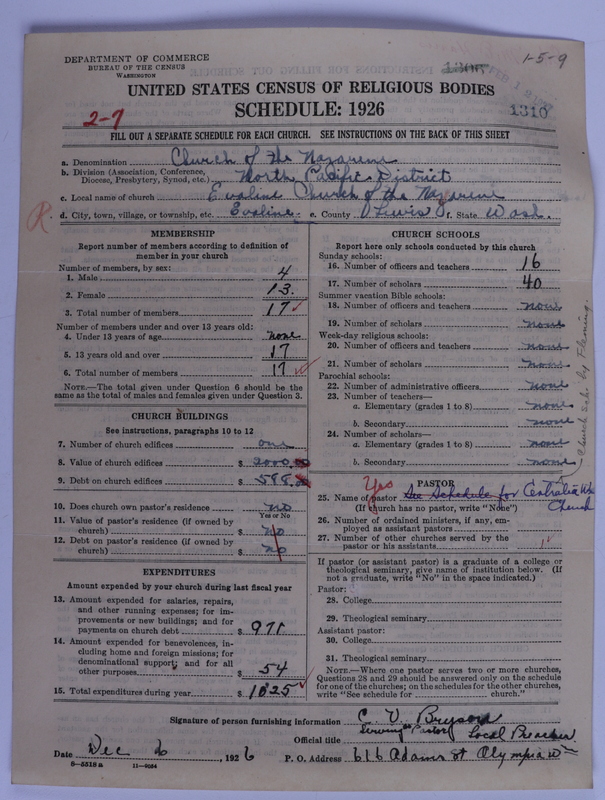 1-5-9
DEPARTMENT OF COMMERCE
BUREAU OF THE CENSUS
WASHINGTON
1306
UNITED STATES CENSUS OF RELIGIOUS BODIES
SCHEDULE: 1926
1310
2-7
FILL OUT A SEPARATE SCHEDULE FOR EACH CHURCH. SEE INSTRUCTIONS ON THE BACK OF THIS SHEET
a. Denomination Church of the Nazarene
b. Division (Association, Conference, Diocese, Presbytery, Synod, etc.) North Pacific District
c. Local name of church Evaline Church of the Nazarene
R. d. City, town, village, or township, etc. Evaline e. County Lewis f. State Wash.
MEMBERSHIP
Report number of members according to definition of
member in your church
Number of members, by sex:
1. Male 4
2. Female 13.
3. Total number of members 17
Number of members under and over 13 years old:
4. Under 13 years of age none
5. 13 years old and over 17
6. Total number of members 17
NOTE.—The total given under Question 6 should be
same as the total of males and females given under Question 3.
CHURCH BUILDINGS
See instructions, paragraphs 10 to 12
7. Number of church edifices one
8. Value of church edifices $ 2000.00
9. Debt on church edifices $ 598.00
10. Does church own pastor's residence no
Yes or No
11. Value of pastor's residence (if owned by
church) $ no
12. Debt on pastor's residence (if owned by
church) $ no
EXPENDITURES
Amount expended by your church during last fiscal year
13. Amount expended for salaries, repairs,
and other running expenses; for im-
provements or new buildings; and for
payments on church debt $ 971
14. Amount expended for benevolences, in-
cluding home and foreign missions; for
denominational support; and for all
other purposes $ 54
15. Total expenditures during year $ 1025
CHURCH SCHOOLS
Report here only schools conducted by this church
Sunday schools:
16. Number of officers and teachers 16
17. Number of scholars 40
Summer vacation Bible schools:
18. Number of officers and teachers none
19. Number of scholars none
Week-day religious schools:
20. Number of officers and teachers none
21. Number of scholars none
Parochial schools:
22. Number of administrative officers none
23. Number of teachers—
a. Elementary (grades 1 to 8) none
b. Secondary none
24. Number of scholars—
a. Elementary (grades 1 to 8) none
b. Secondary none
Church Sch. by Fleming.
PASTOR
Yes
25. Name of pastor See Schedule for Centralia Wn
(If church has no pastor, write "None") Church
26. Number of ordained ministers, if any, em-
ployed as assistant pastors
27. Number of other churches served by the
pastor or his assistants 1
If pastor (or assistant pastor) is a graduate of a college or
theological seminary, give name of institution below. (If
not a graduate, write "No" in the space indicated.)
Pastor:
28. College
29. Theological seminary
Assistant pastor:
30. College
31. Theological seminary
NOTE.—Where one pastor serves two or more churches,
Questions 28 and 29 should be answered only on the schedule
for one of the churches; on the schedules for the other churches,
write "See schedule for church."
Signature of person furnishing information C. V. Bryson
Official title Serving as Pastor Local Preacher
Date Dec 6, 1926 P. O. Address 616 Adams st Olympia Wn
8—5518 a 11—9054